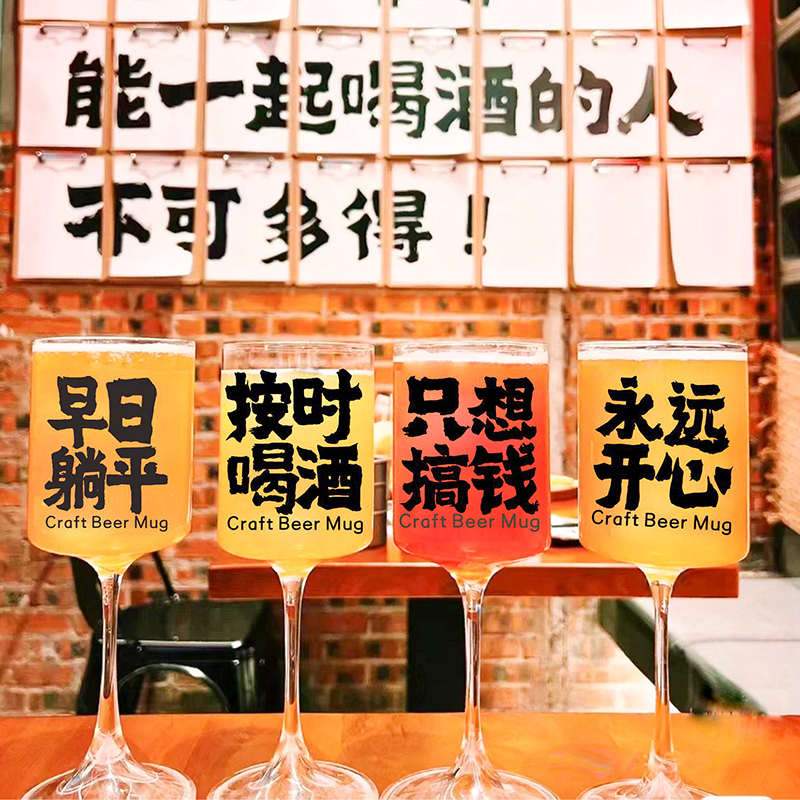 能一起喝酒的人
不可多得！
早日
躺平
Craft Beer Mug
按时
喝酒
Craft Beer Mug
只想
搞钱
Craft Beer Mug
永远
开心
Craft Beer Mug